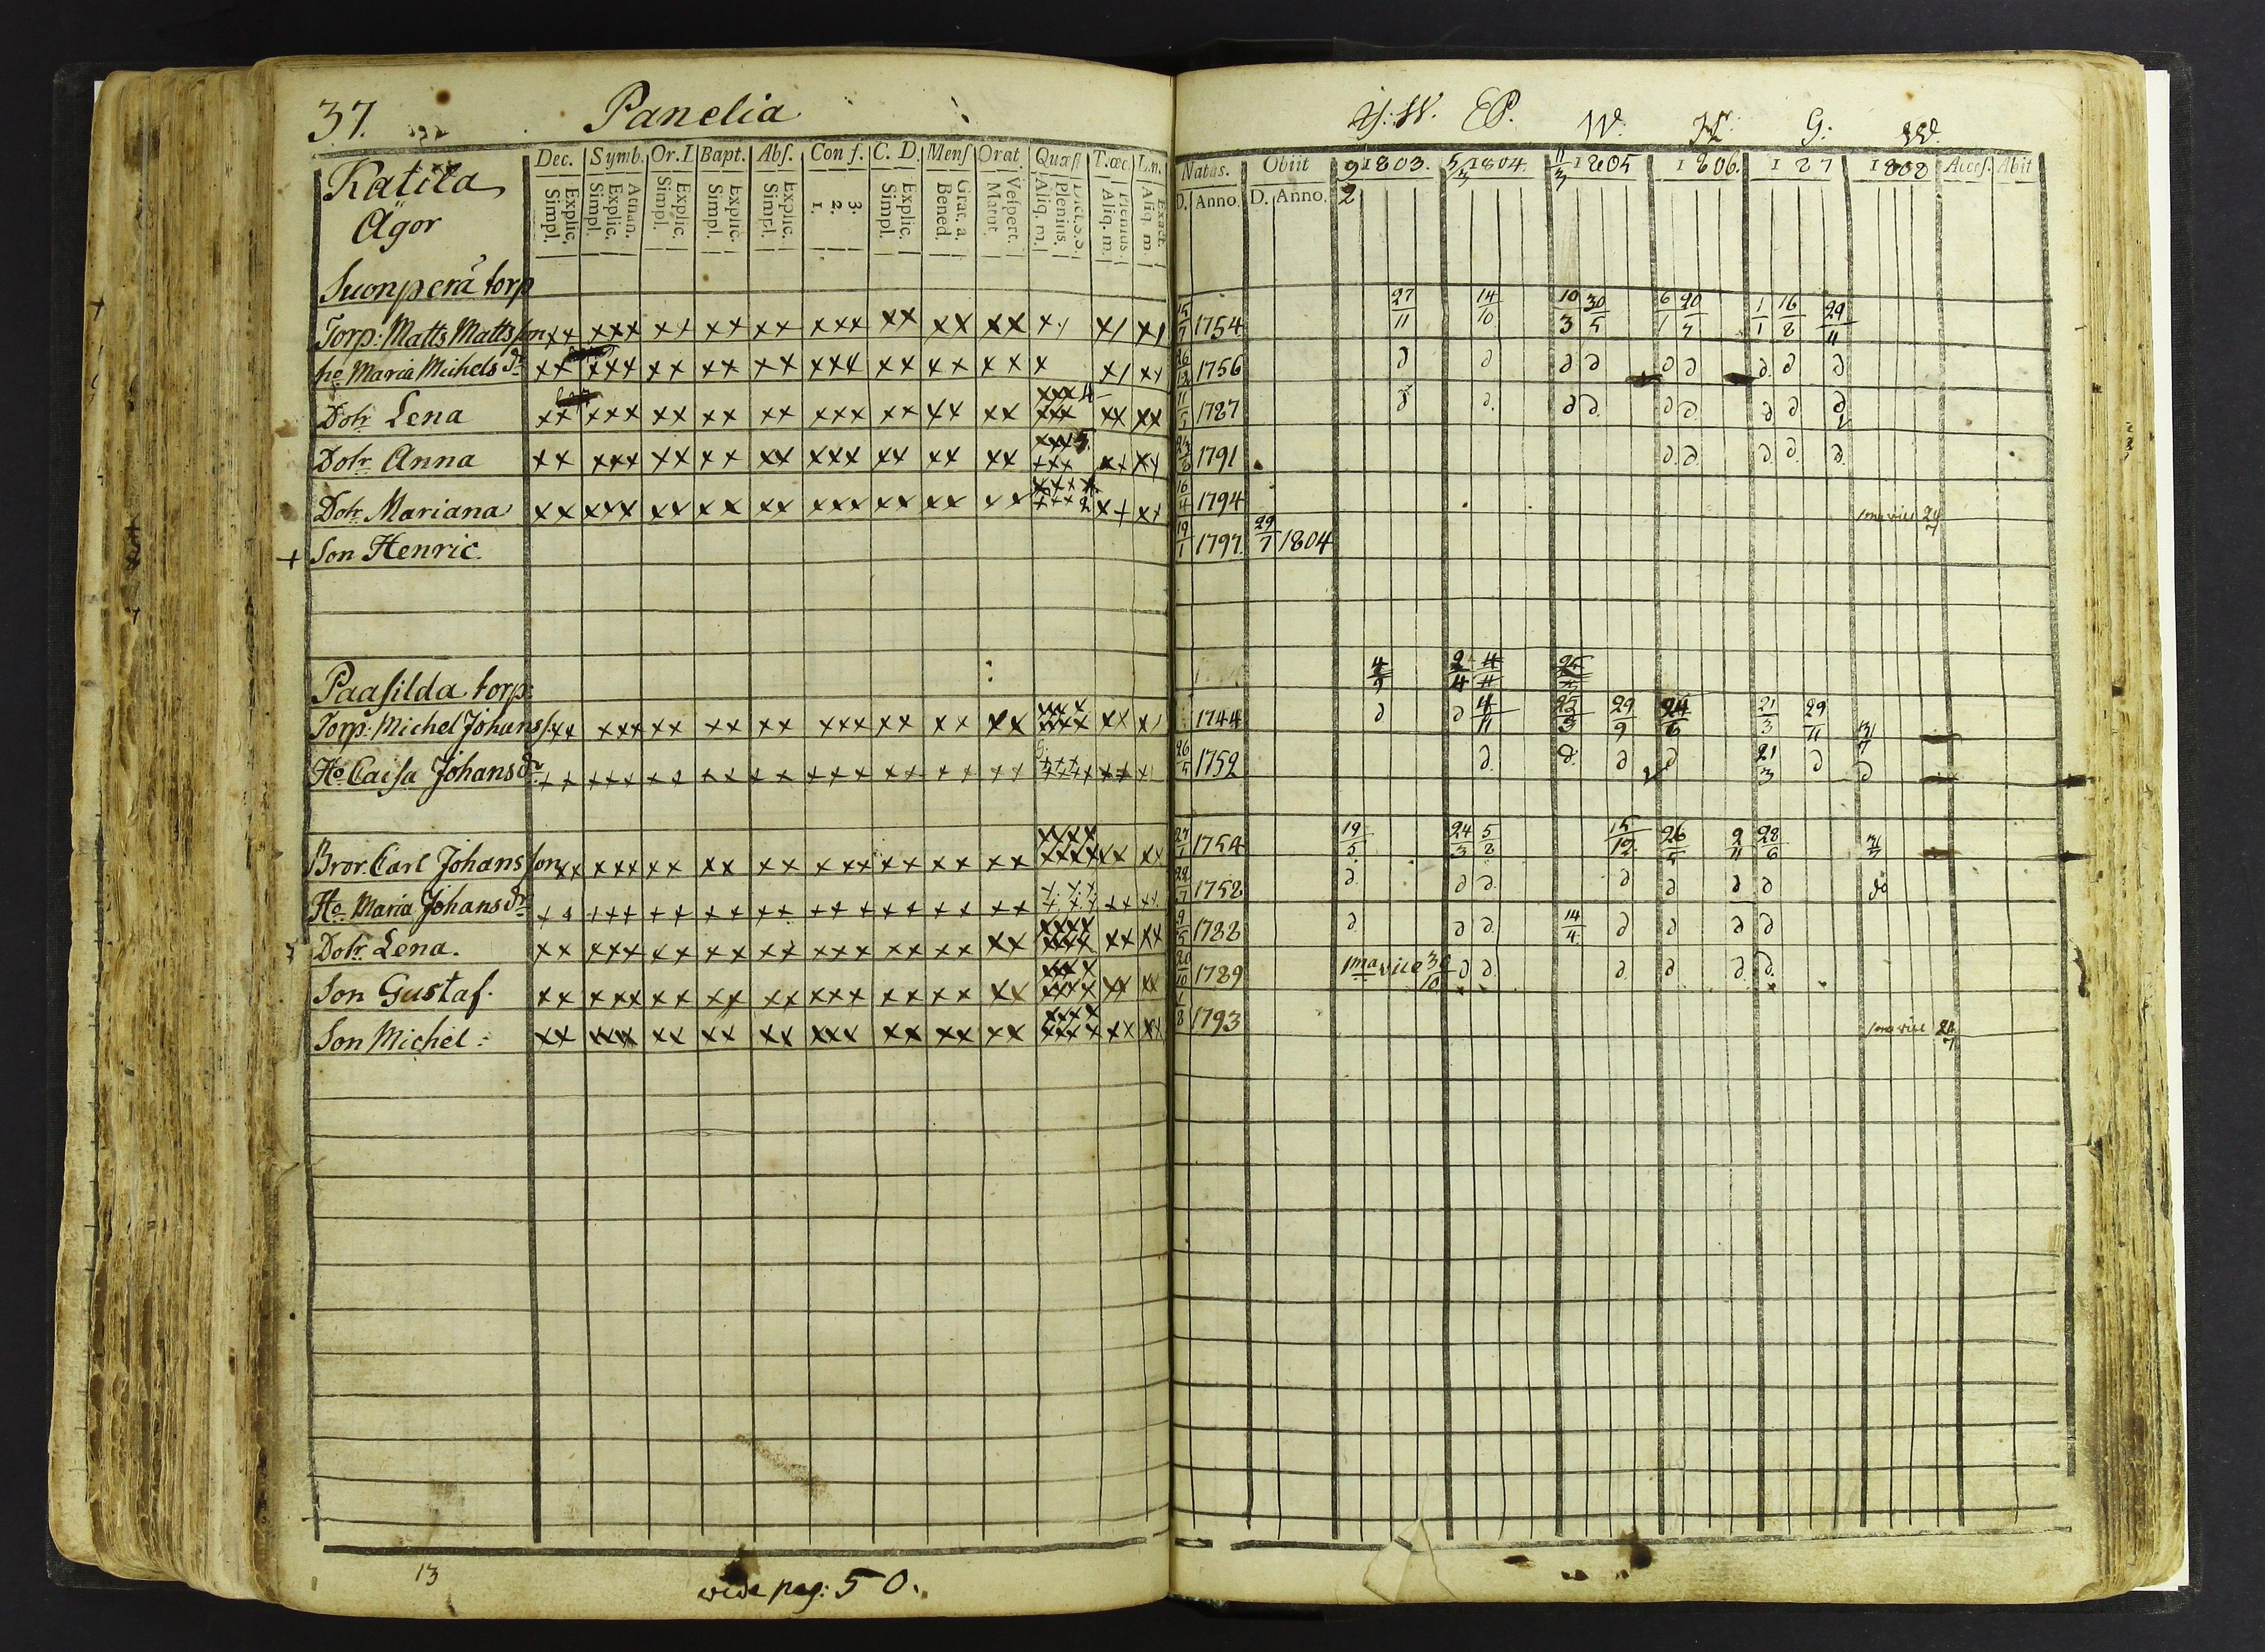 37. Panelia
Y. W. EP. W. G. W.
Dec. Symb. Or. I Bapt. Abs. Conf. C. D. Mens Orat. Quæst T. œc. L. n.
Natus. Obiit 9/2 1803. 5/3 1804. 11/3 1805 1806. 187 1808 Access. Abit
Explic. Simpl. Athan. Explic. Simpl. Explic. Simpl. Explic. Simpl. Explic. Simpl. 3. 2. 1. Explic. Simpl. Grat. a. Bened. Vespert. Matut. Dict. S. S. Plenius. Aliq. m. Plenius. Aliq. m. Exact. Aliq. m
D. Anno. D. Anno.
Katila
Ägor
Suonperä torp
Torp: Matts Mattsson xx xxx xx xx xx xxx xx xx xx 15/7 1754 27/11 14/10 10/3 30/5 6/1 1/1 16/8 29/11
ho Maria Michels dr xx xxx xx xx xx xxx xx xx xx x 26/12 1756 d d d d d d d. d d
Dotr Lena xx xxx xx xx xx xxx xx xx xx xxx 4 xxx xx xx 11/5 1787 d d. d d. d d. d d d
Dotr Anna xx xxx xx xx xx xxx xx xx xx xxx 5. xxx xx xx 1791 d. d. d. d. d.
Dotr Mariana xx xxx xx xx xx xxx xx xx xx xx xx 16/4 1794
+ Son Henric. 19/1 1797. 29/7 1804
Paasilda torp: 4/9 2/4
Torp: Michel Johanss. xx xxx xx xx xx xxx xx xx xx xx 1744 d d 4/11 25/3 29/9 24/6 21/3 29/11 31/7
Ho Caisa Johans dr xx xxx xx xx xx xxx xx xx xx 26/5 1752 d. d. d d 21/3 d d
Bror. Carl Johansson xx xxx xx xx xx xxx xx xx xx xxxx xxxx xx xx 1754 19/5 24/3 5/8 15/12 26/5 2/11 28/6 31/7
Ho Maria Johans dr xx xxx xx xx xx xxx xx xx xx xx xx 22/7 1752 d. d d. d d d d do
Dotr Lena. xx xxx xx xx xx xxx xx xx xx xxxx xxx xx xx 9/5 1788 d. d d. 14/4. d d d d
Son Gustaf. xx xxx xx xx xx xxx xx xx xx xxxx xxxx xx xx 20/10 1789 1ma vice 30/10 d d. d. d d. d.
Son Michel: xx xxx xx xx xx xxx xx xx xx xxxx xxxx xx xx 1/8 1793 1ma vice 24/7
13
vide pag: 50.